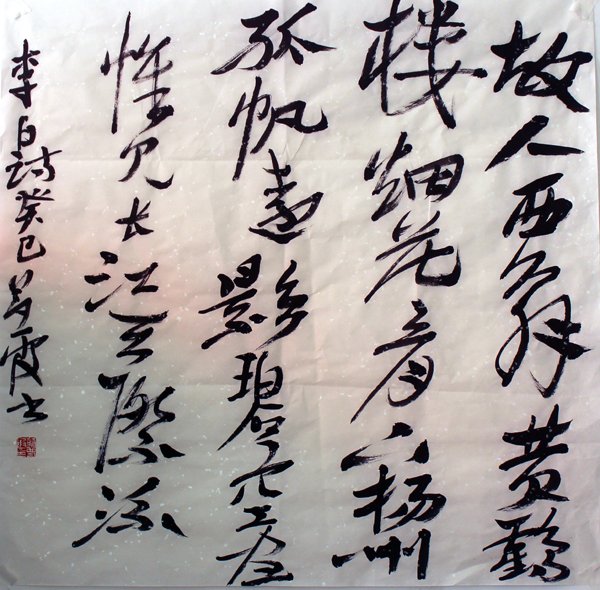 故人西辞黄鶴
楼烟花三月下杨州
孤帆遠影碧空盡
惟见长江天際流
李白诗癸巳霞书